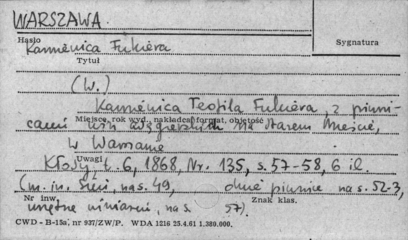 WARSZAWA
Hasło
Kamienica Fukiera
Sygnatura
Tytuł
(W.)
Kamienica Teofila Fukiera, z piwni-
Miejsce, rok wyd., nakładca, format, objętość
cami win węgierskich na Starem Mieście,
w Warszawie
Uwagi
Kłosy, t. 6, 1868, Nr. 135, s. 57-58, 6 il.
(m. in. Sień, na s. 49, dwie piwnice na s. 52-3,
Nr inw.
Znak klas.
wnętrze winiarni, na s. 57).
CWD - B-15a, nr 937/ZW/P. WDA 1216 25.4.61 1.389.000.